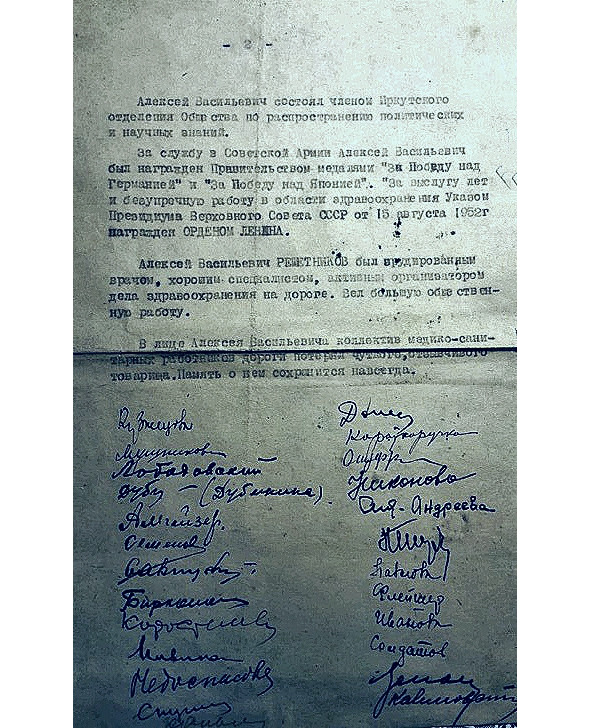 - 2 -
Алексей Васильевич состоял членом Иркутского
отделения Общества по распространению политических
и научных знаний.
За службу в Советской Армии Алексей Васильевич
был награжден Правительством медалями "За Победу над
Германией" и "За Победу над Японией". "За выслугу лет
и безупречную работу в области здравоохранения Указом
Президиума Верховного Совета СССР от 15 августа 1952г
награжден ОРДЕНОМ ЛЕНИНА.
Алексей Васильевич РЕШЕТНИКОВ был эрудированным
врачом, хорошим специалистом, активным организатором
дела здравоохранения на дороге. Вел большую обществен-
ную работу.
В лице Алексея Васильевича коллектив медико-сани-
тарных работников дороги потерял чуткого, отзывчивого
товарища. Память о нем сохранится навсегда.
Кузнецова
Мушникова
Дубу - (Дубинина).
Никонова
Андреева
Семенов
Флейшер
Иванова
Солдатов
Недоспасова